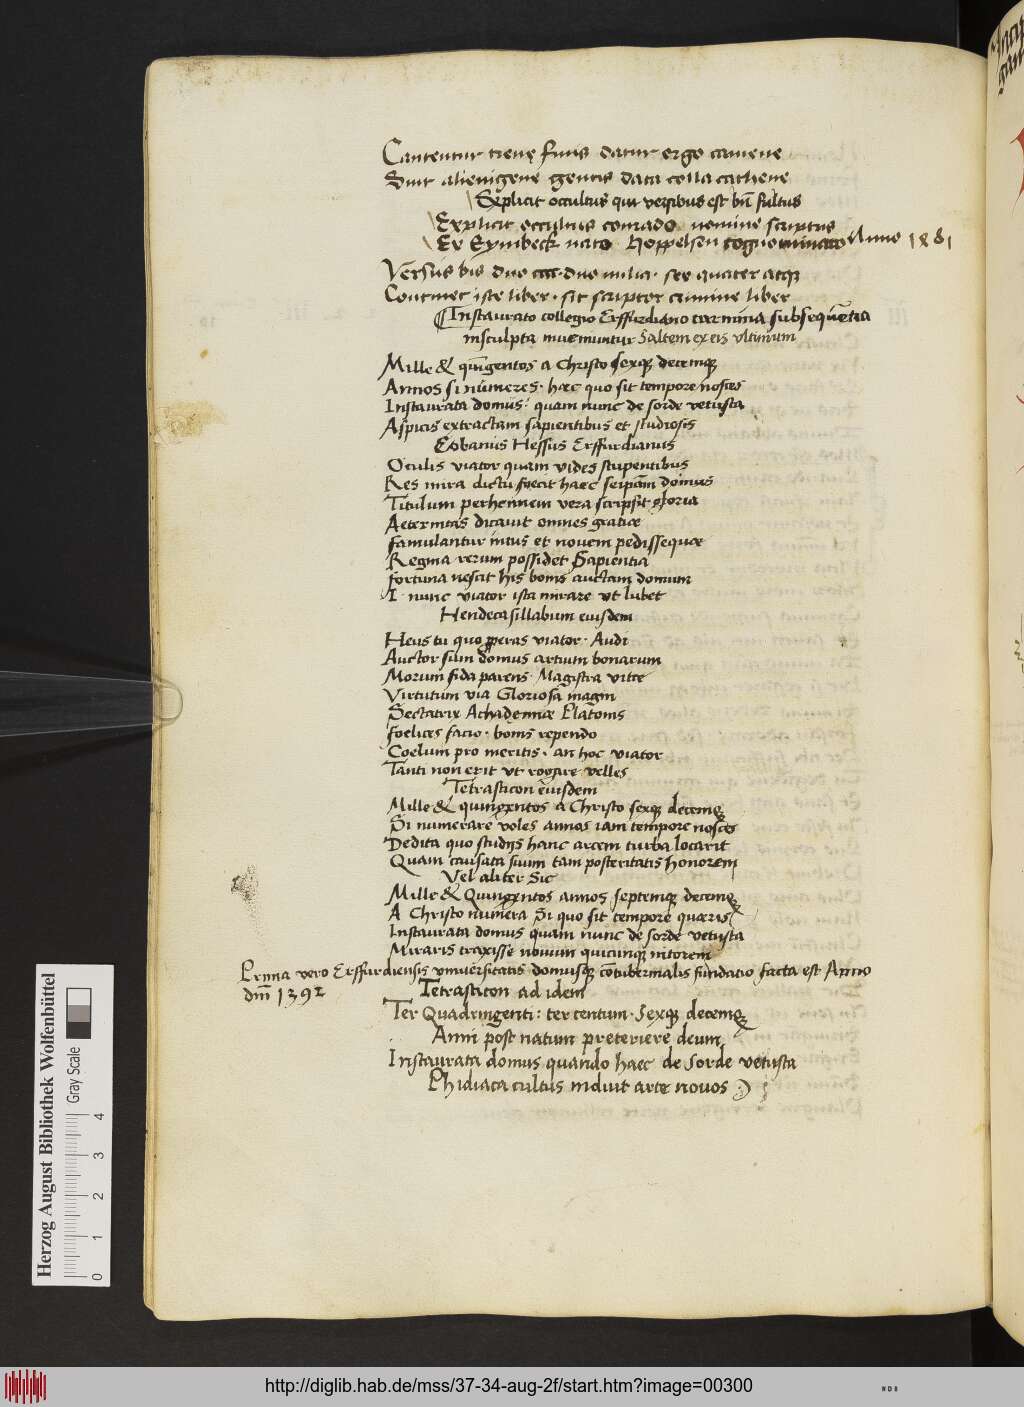 Cantentur trene funis datur ergo camene
Sint alienigene gentis data colla cathene
Explicit occultus qui versibus est bn̄ fultus
Explicit occultus conrado nomine scriptus
Ex Eymbeck nato Hoppelsen cognominato Anno 1881
Versus bis duo duo milia sex quater atq
Continet iste liber · sit scriptor crimine liber
Instaurato collegio Erffurdiano carmina subsequētia
insculpta inueniuntur Saltem ex eis vltimum
Mille & quīgentos a Christo sexq decemq
Annos si nūmeres · haec quo sit tempore nosces
Instaurata domus: quam nunc de sorde vetusta
Aspicis extractam sapientibus et studiosis
Eobanus Hessus Erffurdianus
Oculis viator quam vides stupentibus
Res mira dictu foecit haec seipām domus
Titulum perhennem vera scripsit gloria
Aeternitas dicauit omnes gratiae
famulantur intus et nouem pedissequae
Regina rerum possidet Sapientia
fortuna nescit his bonis auctam domum
I nunc viator ista mirare vt lubet
Hendecasillabum eiusdem
Heus tu quo pperas viator · Audi
Auctor sum domus artium bonarum
Morum fida parens · Magistra vitae
Virtutum via Gloriosa magni
Sectatrix Achademiae Platonis
foelices facio · bonis rependo
Coelum pro meritis · an hoc viator
Tanti non erit vt rogare velles
Tetrasticon eiusdem
Mille & quingentos a Christo sexq decemq
Si numerare voles annos iam tempore nosces
Dedita quo studijs hanc arcem turba locarit
Quam causata suum tam posteritatis honorem
Vel aliter Sic
Mille & Quingentos annos septemq decemq
A Christo numera Si quo sit tempore quaeris
Instaurata domus quam nunc de sorde vetusta
Miraris traxisse nouum quicunq nitorem
Prima vero Erffurdiensis vniuersitatis domusq cōtubernalis fundatio facta est Anno
dm̄ 1392
Tetrasticon ad idem
Ter Quadringenti: ter centum · Sexq decemq
Anni post natum preteriere deum
Instaurata domus quando haec de sorde vetusta
Phidiaca cultus induit arte nouos
Herzog August Bibliothek Wolfenbüttel
Gray Scale
0 1 2 3 4
http://diglib.hab.de/mss/37-34-aug-2f/start.htm?image=00300